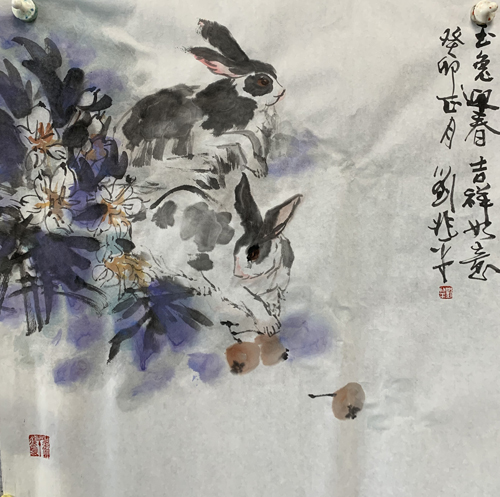 玉兔迎春 吉祥如意
癸卯正月 刘兆平